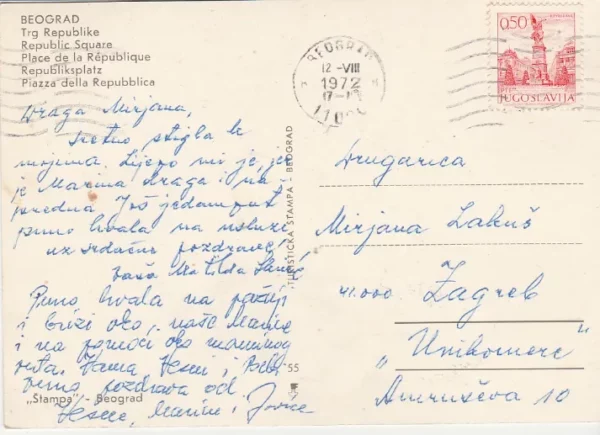 BEOGRAD
Trg Republike
Republic Square
Place de la République
Republiksplatz
Piazza della Repubblica
BEOGRAD
12-VIII
1972
0,50
JUGOSLAVIJA
Draga Mirjana,
sretno stigla k
mojima. Lijepo mi je, jer
je Marina draga i na
predna. Još jedamput
puno hvala na usluzi
uz srdačne pozdrave,
Vaša Matilda
Puno hvala na pažnji
i brizi oko naše
i na pomoći oko
Vama, Vesni i
pozdrava od
Vesne, i
TURISTIČKA ŠTAMPA - BEOGRAD
55
„Štampa" - Beograd
Drugarica
Mirjana Lakuš
41.000 Zagreb
„Unikomerc"
Amruševa 10